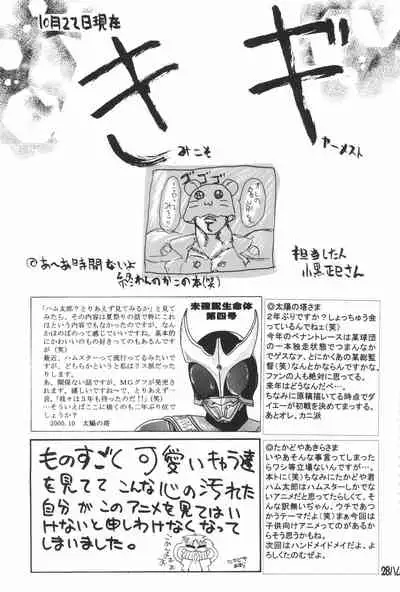 10月22日現在
き
ギ
みこそ
ャーメスト
ゴゴゴ
@あ〜あ時間ないよ
終わんのかこの本(笑)
担当したん
小黒正巳さん
「ハム太郎?とりあえず見てみるか」と見て
みたら、その内容は夏祭りの話で特にこれ
はという内容でもなかったのですが、なん
かほのぼのって感じでいいですね。基本的
にかわいいもの好きってのもあるんです
が(笑)
最近、ハムスターって流行ってるみたいで
すが、どちらかというと私はリス派だった
りします。
あ、関係ない話ですが、MGグフが発売さ
れます。嬉しいですね〜で、とりあえず一
言。「我々は３年も待ったのだ!!」(笑)
…そういえばここに描くのも二年ぶり位で
しょうか?
2000.10 太陽の塔
未確認生命体
第四号
◎太陽の塔さま
２年ぶりですか?しょっちゅう会
っているんでねぇ(笑)
今年のペナントレースは某球団
の一本独走状態でつまんなか
でゲスなァ、とにかくあの某監督
(笑)なんとかならんですかな。
ファンの人も絶対に思ってる。
来年はどうなんだべ…。
ちなみに原稿描いてる時点でダ
イエーが初戦を決めてまっする。
あとオレ、カニ派
ものすごく可愛いキャラ達
を見ててこんな心の汚れた
自分がこのアニメを見てはい
けないと申しわけなくなって
しまいました。
◎たかどやあきらさま
いやあそんな事言ってしまった
らワシ等立場ないんですが…。
本トに(笑)ちなみにたかどや君
ハム太郎はハムスターしかでな
いアニメだと思ってたらしくて、そ
んな訳無いぢゃん、ウチであつ
かうテーマだよ(笑)まぁ今回は
子供向けアニメってのがあるか
らそう思うかもね。
次回はハンドメイドメイだ。よろ
しくたのむぜよ。